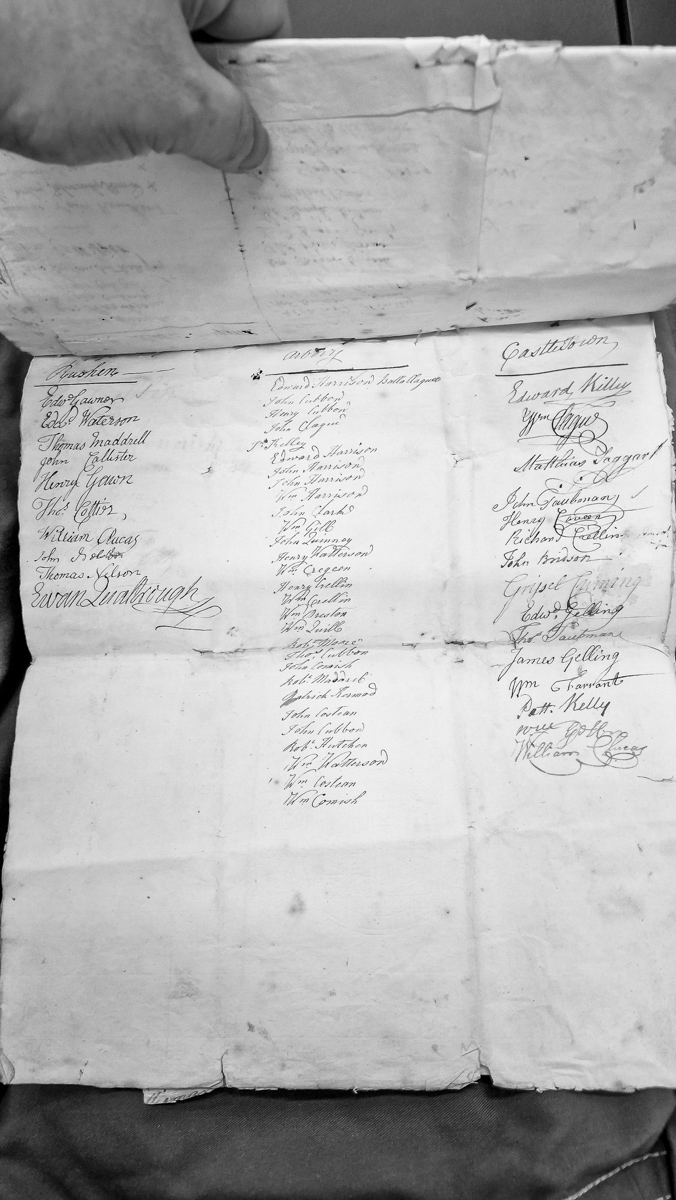 Rushen
Edwd Gawner
Edwd Waterson
Thomas Maddrell
John Callister
Henry Gawn
Thos Cottier
William Clucas
John
Thomas Nelson
Ewan Qualtrough
Arbory
Edward Harrison Ballallague
John Cubbon
Henry Cubbon
John Clague
Kelley
Edward Harrison
John Harrison
John Harrison
Wm Harrison
John Clark
Wm Gill
John Quinney
Henry Watterson
Wm Cregeen
Henry Crellin
Wm Crellin
Wm Preston
Wm Quill
Robt Moore
Thos Cubbon
John Comish
Robt Maddrel
Patrick Kermod
John Costean
John Cubbon
Robt Hutchen
Wm Watterson
Wm Costean
Wm Comish
Castletown
Edward Killey
Wm Clague
Matthias Taggart
John Taubman
Henry
Richard
John Bridson
Grissel Cuming
Edwd Gelling
Thos Taubman
James Gelling
Wm Tarrant
Patt. Kelly
Will Gell
William Clucas